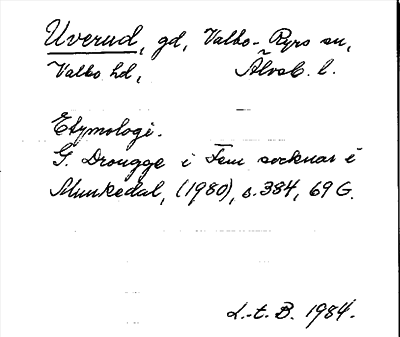 Uverud, gd, Valbo-Ryrs sn,
Valbo hd, Älvsb. l.
Etymologi.
G. Drougge i Fem socknar i
Munkedal, (1980), s. 384, 69 G.
L.-t. B. 1984.